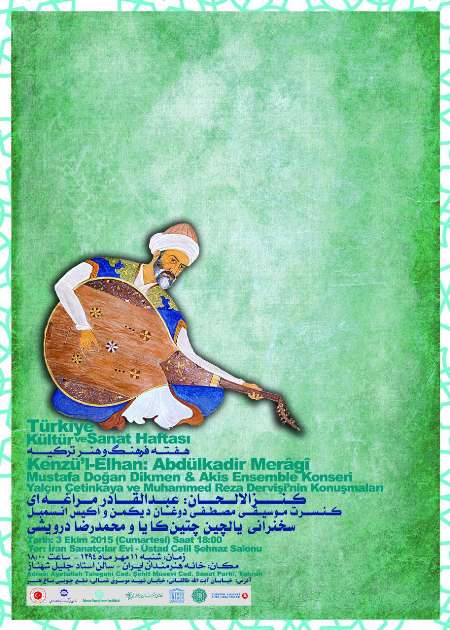 Türkiye
Kültür ve Sanat Haftası
هفته فرهنگ و هنر ترکیه
Kenzü'l-Elhan: Abdülkadir Merâgî
Mustafa Doğan Dikmen & Akis Ensemble Konseri
Yalçın Çetinkaya ve Muhammed Reza Dervişi'nin Konuşmaları
کنزالالحان: عبدالقادر مراغه‌ای
کنسرت موسیقی مصطفی دوغان دیکمن و آکیس انسمبل
سخنرانی یالچین چتین کایا و محمدرضا درویشی
Tarih: 3 Ekim 2015 (Cumartesi) Saat 18:00
Yer: İran Sanatçılar Evi - Üstad Celil Şehnaz Salonu
زمان: شنبه ۱۱ مهر ماه ۱۳۹۴ - ساعت ۱۸:۰۰
مکان: خانه هنرمندان ایران - سالن استاد جلیل شهناز
Adres: Ayetullah Talegani Cad. Şehit Musevi Cad. Sanat Parkı, Tahran
آدرس: خیابان آیت الله طالقانی، خیابان شهید موسوی شمالی، ضلع جنوبی باغ هنر